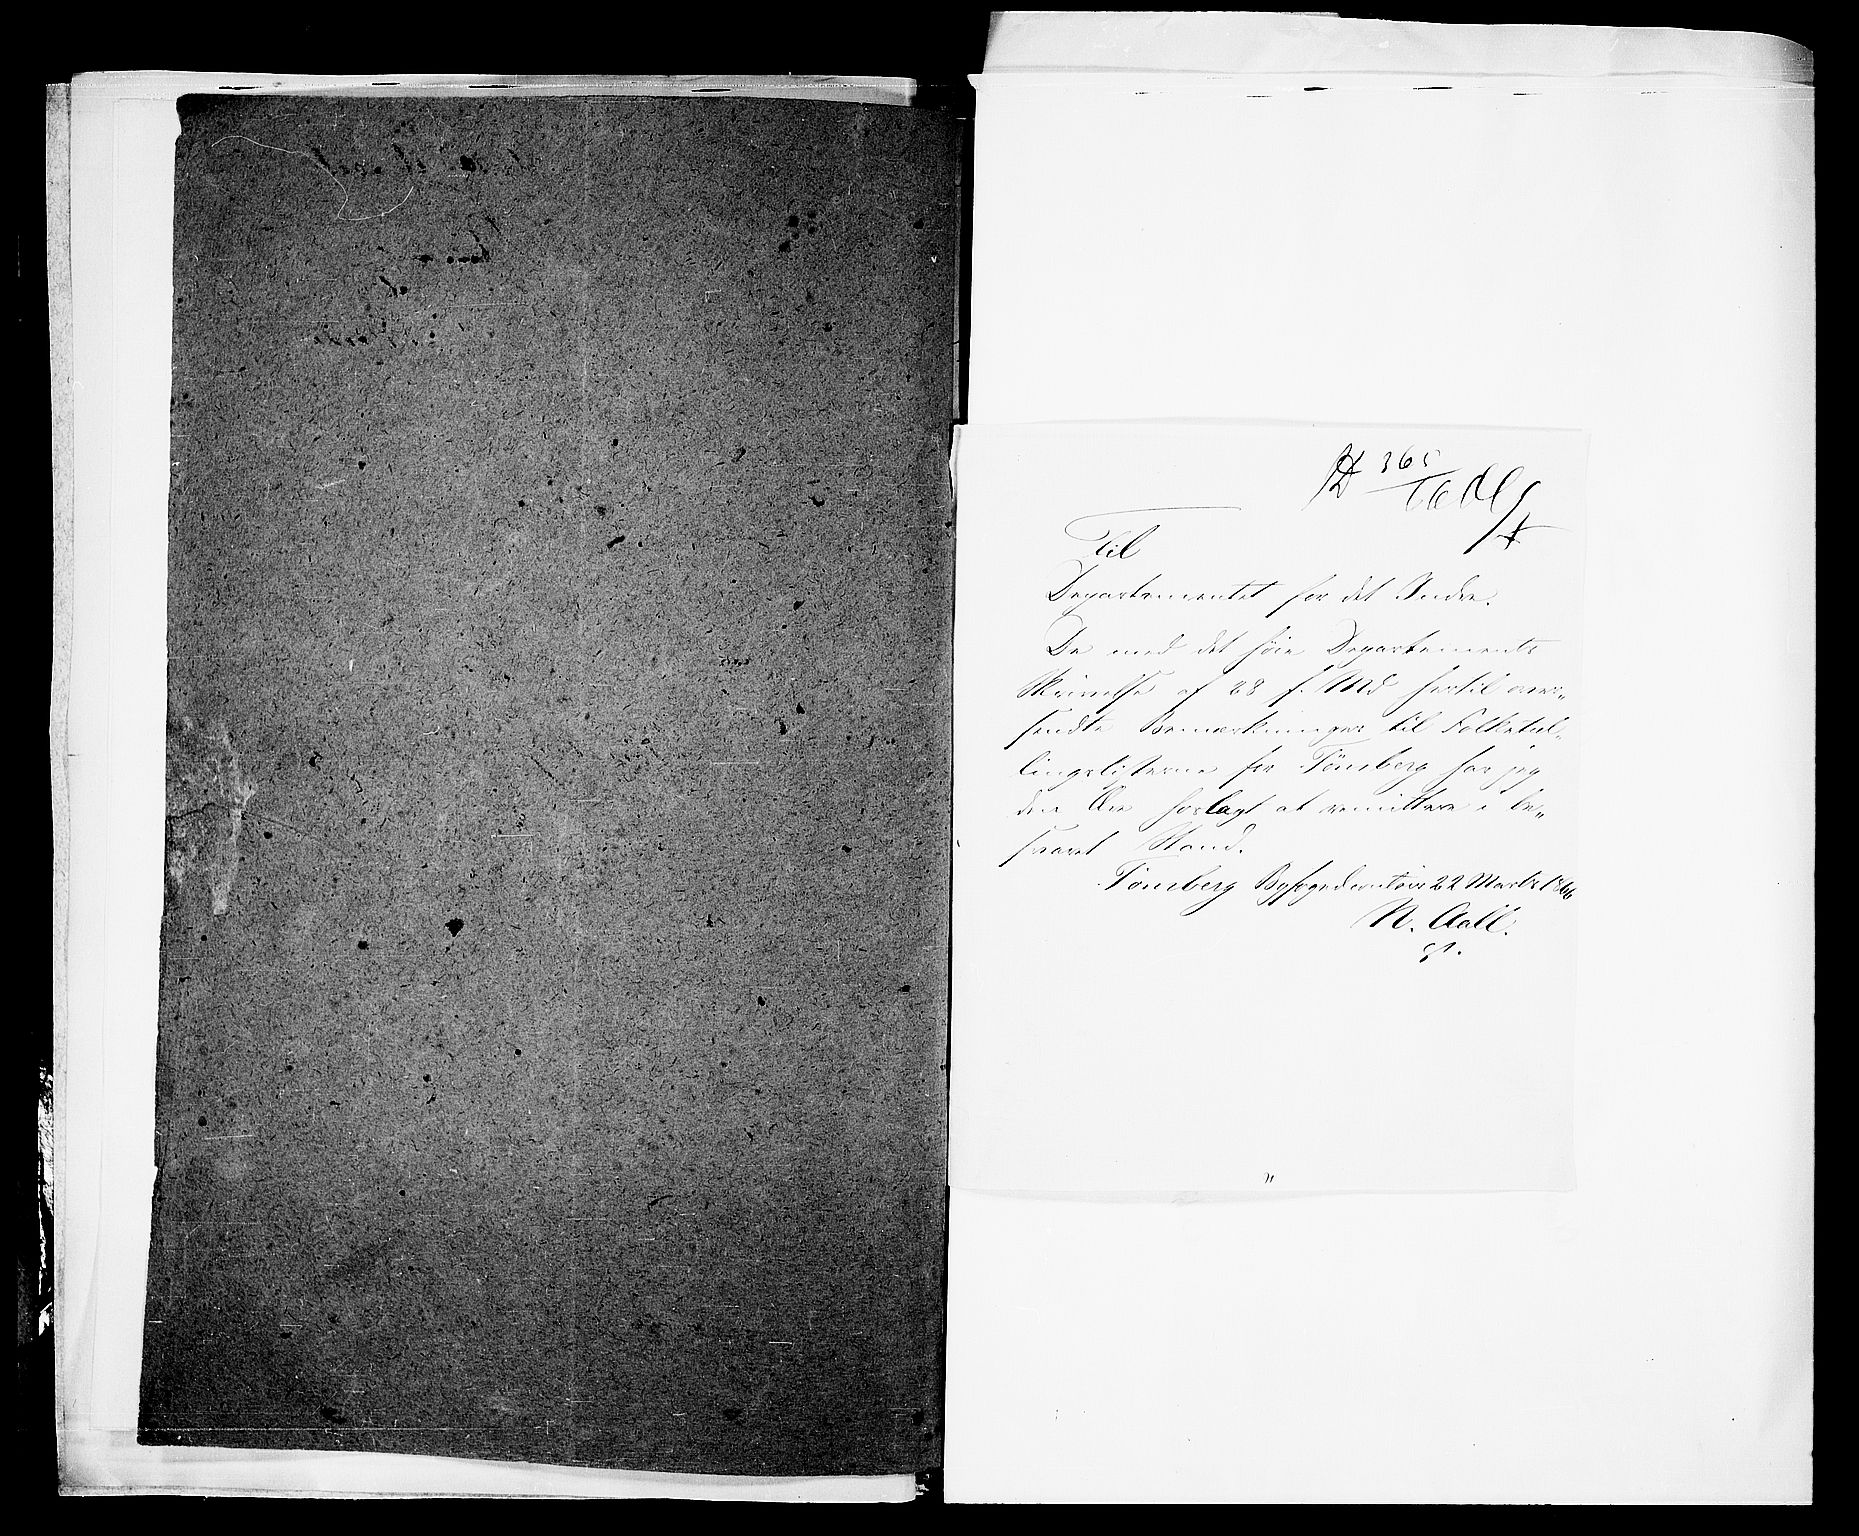 365
Til
Departementet for det Indre.
De med det höie Departements
Skrivelse af 28 f. Md hertil over„
sendte Bemærkninger til Folketæl„
lingslisterne for Tönsberg har jeg
den Ære herlagt at remittere i be„
svaret Stand.
Tönsberg Byfogedcontoir 22 Marts 1866
N. Aall.